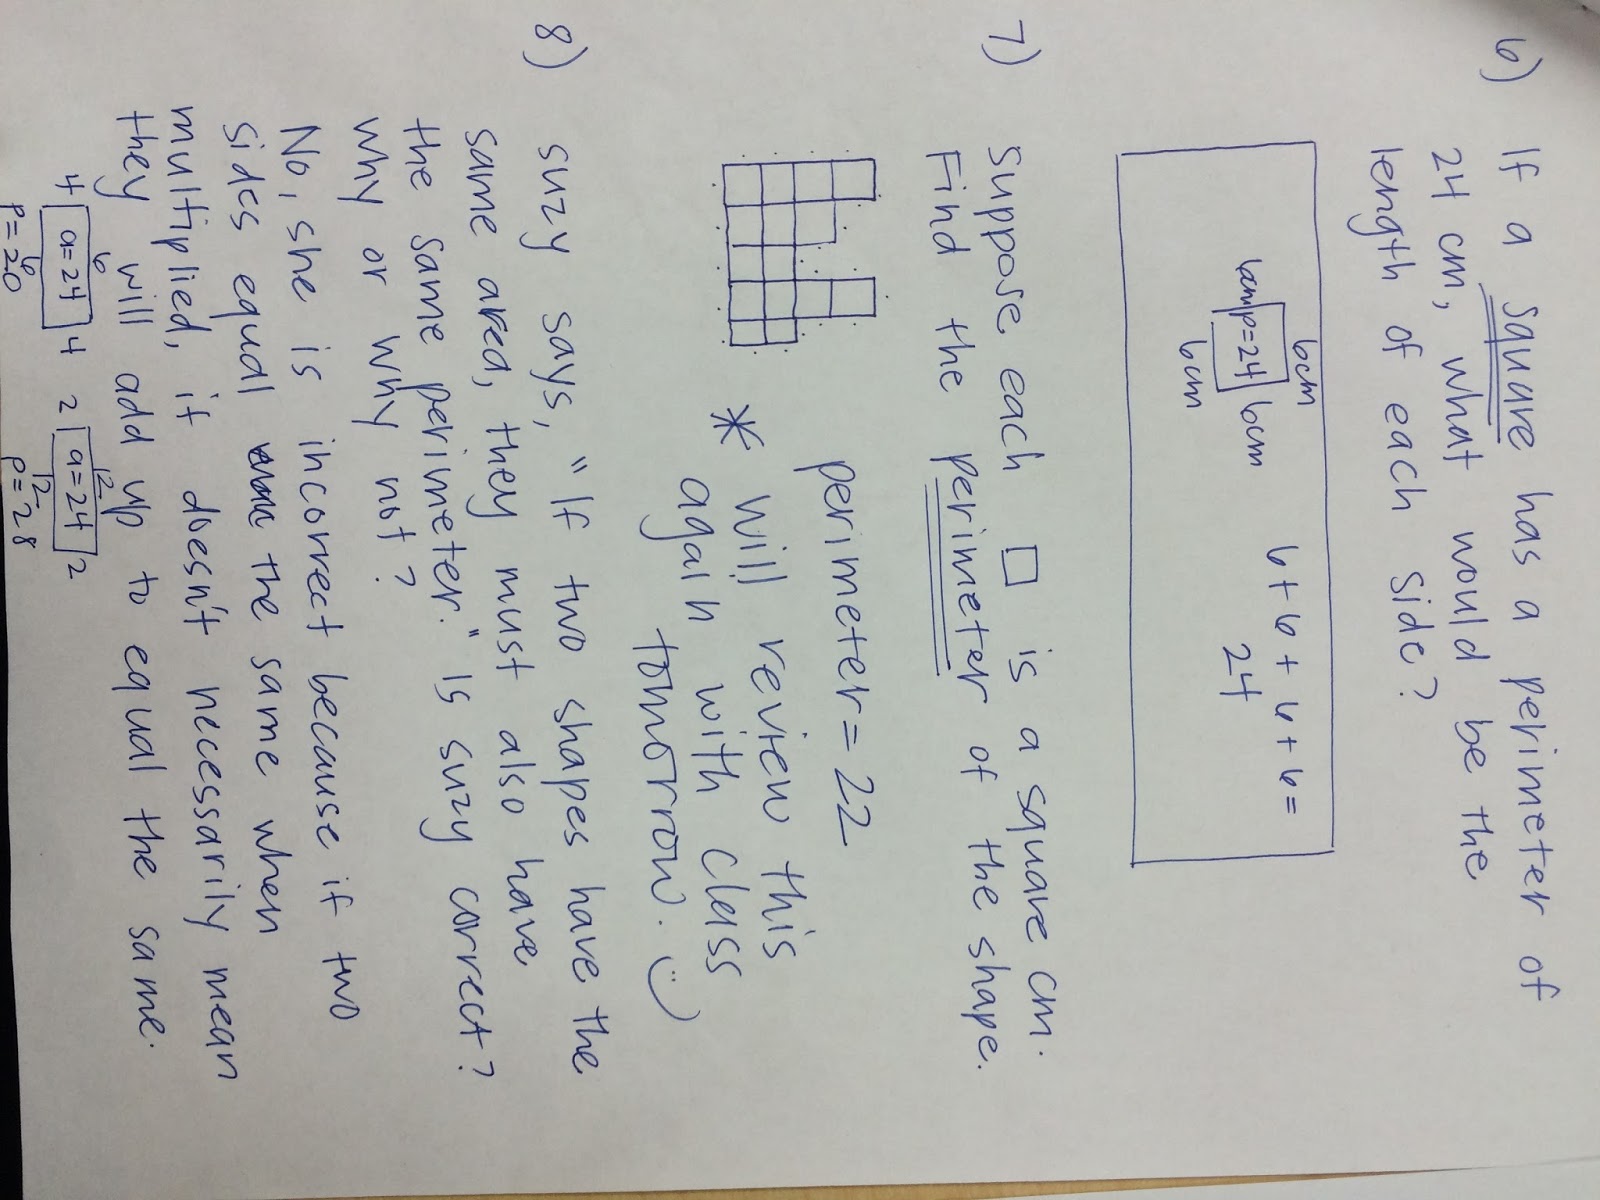 6) If a square has a perimeter of
24 cm, what would be the
length of each side?
6cm
6cm p=24 6cm
6cm
6+6+6+6=
24
7) Suppose each □ is a square cm.
Find the perimeter of the shape.
perimeter=22
* will review this
again with class
tomorrow.
8) suzy says, "If two shapes have the
same area, they must also have
the same perimeter." Is suzy correct?
why or why not?
No, she is incorrect because if two
sides equal the same when
multiplied, it doesn't necessarily mean
they will add up to equal the same.
6
4 a=24 4
6
p=20
12
2 a=24 2
12
p=28